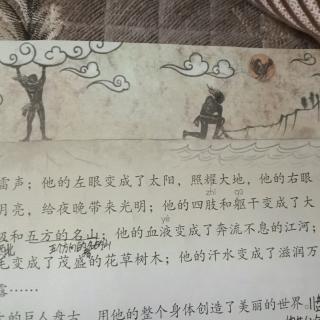 雷声；他的左眼变成了太阳，照耀大地，他的右眼
zhī qū
月亮，给夜晚带来光明；他的四肢和躯干变成了大
yè
极和五方的名山；他的血液变成了奔流不息的江河；
毛变成了茂盛的花草树木；他的汗水变成了滋润万
露……
的巨人盘古，用他的整个身体创造了美丽的世界。